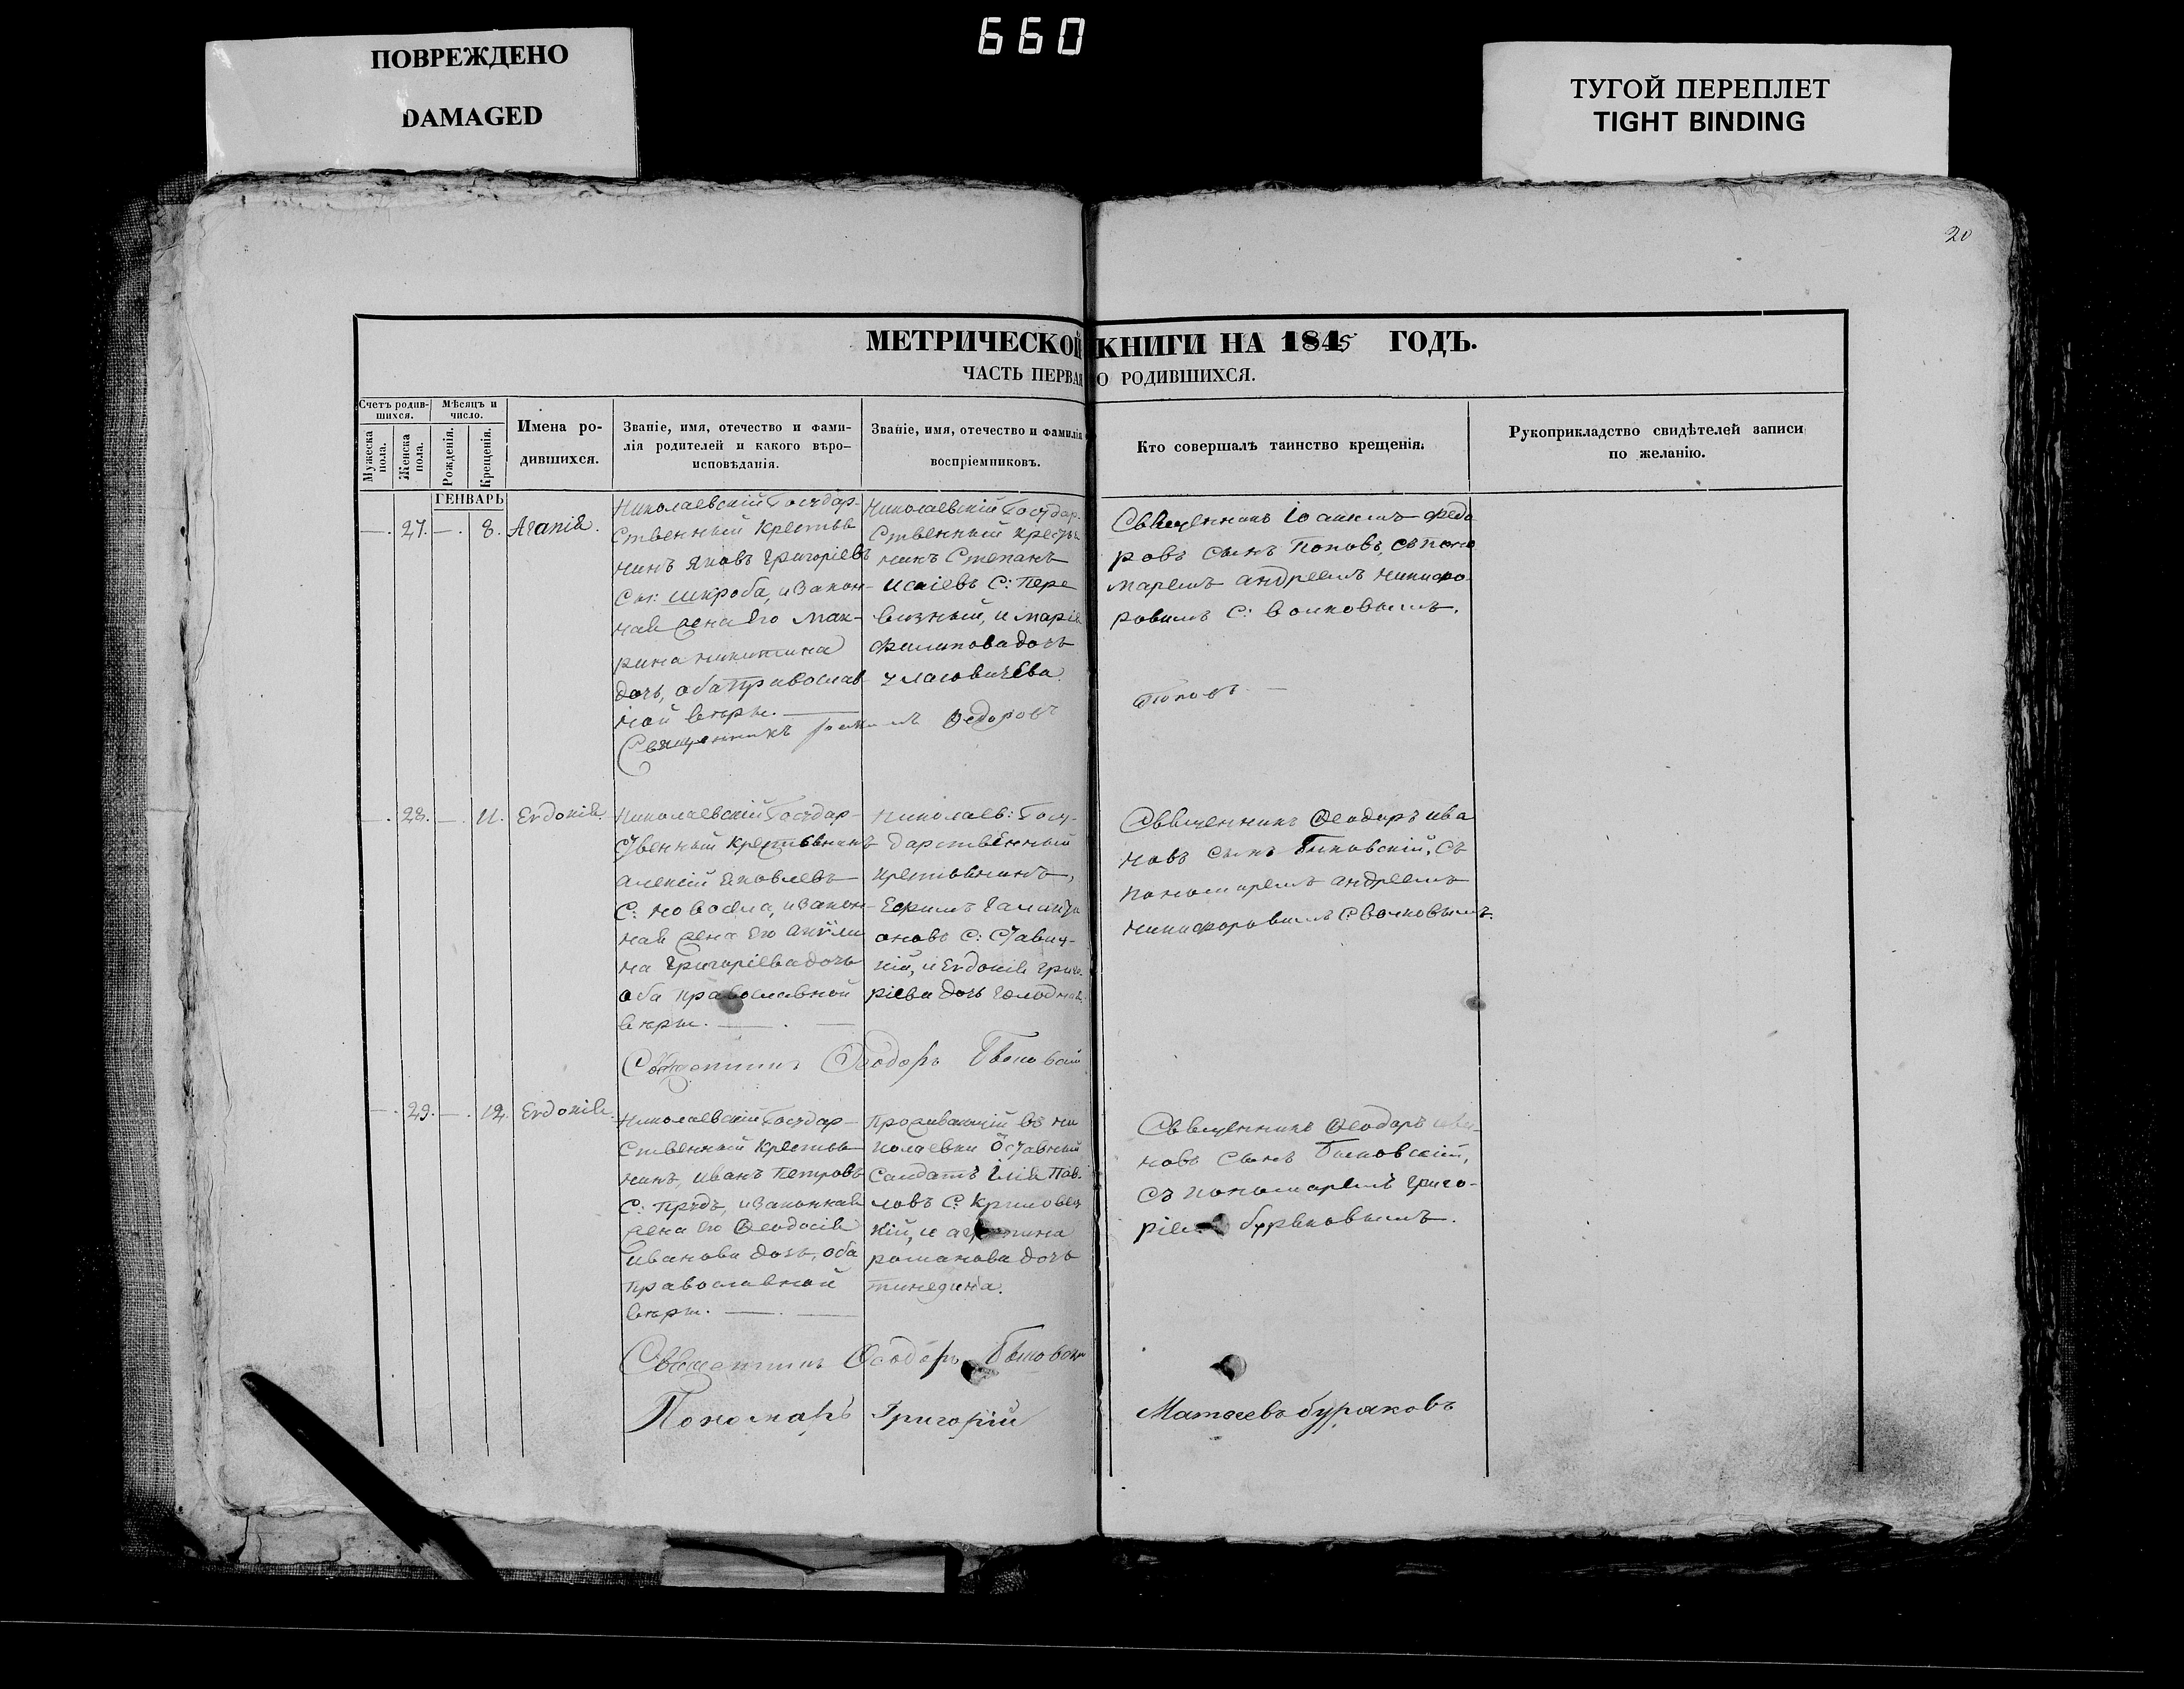 660
ПОВРЕЖДЕНО
DAMAGED
ТУГОЙ ПЕРЕПЛЕТ
TIGHT BINDING
20
МЕТРИЧЕСКОЙ КНИГИ НА 1845 ГОДЪ.
ЧАСТЬ ПЕРВАЯ О РОДИВШИХСЯ.
Счетъ родив-
шихся.
Мужеска пола.
Женска пола.
Мѣсяцъ и
число.
Рожденія.
Крещенія.
Имена ро-
дившихся.
Званіе, имя, отечество и фами-
лія родителей и какого вѣро-
исповѣданія.
Званіе, имя, отечество и фамилія
воспріемниковъ.
Кто совершалъ таинство крещенія.
Рукоприкладство свидѣтелей записи
по желанію.
ГЕНВАРЬ
—. 27. —. 8. Агапія.
Николаевскій Государ-
ственный Крестья
нинъ Яковъ Григоріевъ
Сы: Шкроба, и закон-
ная жена его Мак-
рина Никитина
дочь, оба православ
ной вѣры. —
Николаевскій Государ-
ственный крестья
нинъ Степанъ
Исаіевъ С: Пере
вязный, и Марія
Филипова дочь
Священникъ Іоакимъ Федо
ровъ сынъ Поповъ, съ поно
маремъ Андреемъ Никифо
ровымъ С: Волковымъ.
Священникъ Іоакимъ Федоровъ
Поповъ. —
—. 28. —. 11. Евдокія.
Николаевскій Государ-
ственный Крестьянинъ
Алексій Яковлевъ
С: и закон-
ная жена его Акули
на Григоріева дочь
оба православной
вѣры. — . —
Николаев: Госу-
дарственный
крестьянинъ,
Ефимъ
оновъ С: Ставиц-
кій, и Евдокія Григо-
ріева дочь Голодная.
Священникъ Феодоръ Ива
новъ сынъ Быковскій, съ
пономаремъ Андреемъ
Никифоровымъ С: Волковымъ.
Священникъ Феодоръ Быковскій
—. 29. —. 12. Евдокія.
Николаевскій Государ-
ственный Крестья
нинъ, Иванъ Петровъ
С: и законная
жена его Феодосія
Иванова дочь, оба
православной
вѣры. — . —
Проживающій въ Ни
колаевки Отставный
Салдатъ Илія Пав-
ловъ С:
кій, и
романова дочь
Священникъ Феодоръ Ива-
новъ сынъ Быковскій,
съ пономаремъ Григо-
ріемъ Буряковымъ.
Священникъ Феодоръ Быковскій
Пономарь Григорій Матвеевъ Буряковъ